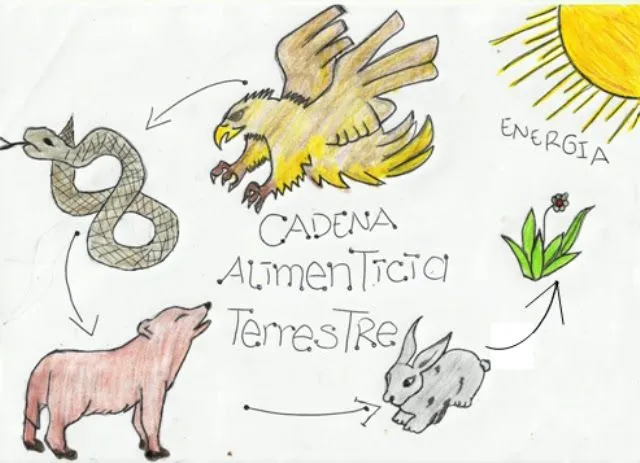 ENERGIA
CADENA
AlimenTicia
TerresTre